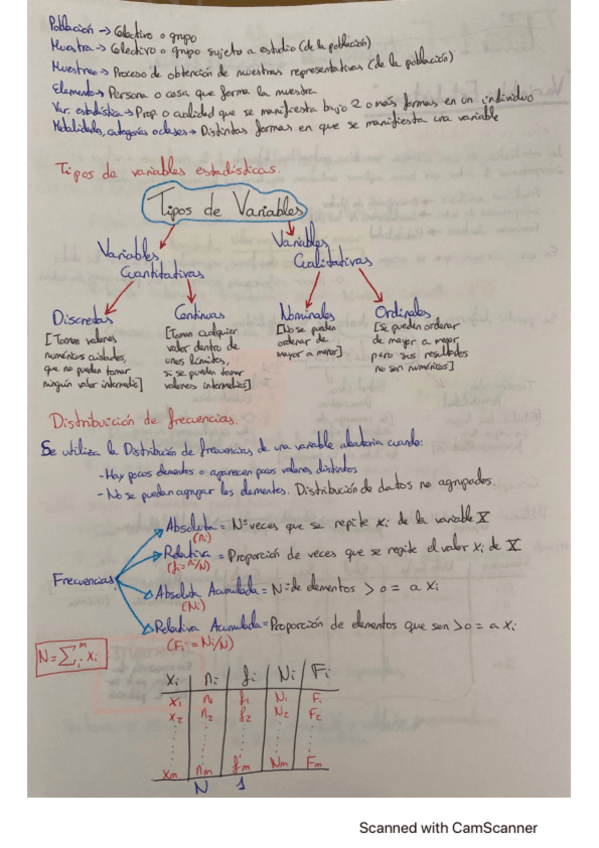 Población → Colectivo o grupo
Muestra → Colectivo o grupo sujeto a estudio (de la población)
Muestreo → Proceso de obtención de muestras representativas (de la población)
Elemento → Persona o cosa que forma la muestra
Var. estadística → Prop. o cualidad que se manifiesta bajo 2 o más formas en un individuo
Modalidades, categorías o clases → Distintas formas en que se manifiesta una variable
Tipos de variables estadísticas.
Tipos de Variables
Variables Cuantitativas
Variables Cualitativas
Discretas
[Toman valores
numéricos aislados,
que no pueden tomar
ningún valor intermedio]
Continuas
[Toman cualquier
valor dentro de
unos límites,
si se pueden tomar
valores intermedios]
Nominales
[No se pueden
ordenar de
mayor a menor]
Ordinales
[Se pueden ordenar
de mayor a menor
pero sus resultados
no son numéricos]
Distribución de frecuencias.
Se utiliza la Distribución de frecuencias de una variable aleatoria cuando:
- Hay pocos elementos o aparecen pocos valores distintos
- No se puedan agrupar los elementos. Distribución de datos no agrupados.
Frecuencias
Absoluta = Nº veces que se repite xi de la variable X
(ni)
Relativa = Proporción de veces que se repite el valor xi de X
(fi = ni/N)
Absoluta Acumulada = Nº de elementos > o = a xi
(Ni)
Relativa Acumulada = Proporción de elementos que sen > o = a xi
(Fi = Ni/N)
N = ∑ᵢᵐ xi
xi | ni | fi | Ni | Fi
x1 n1 f1 N1 F1
x2 n2 f2 N2 F2
xm nm fm Nm Fm
N 1
Scanned with CamScanner